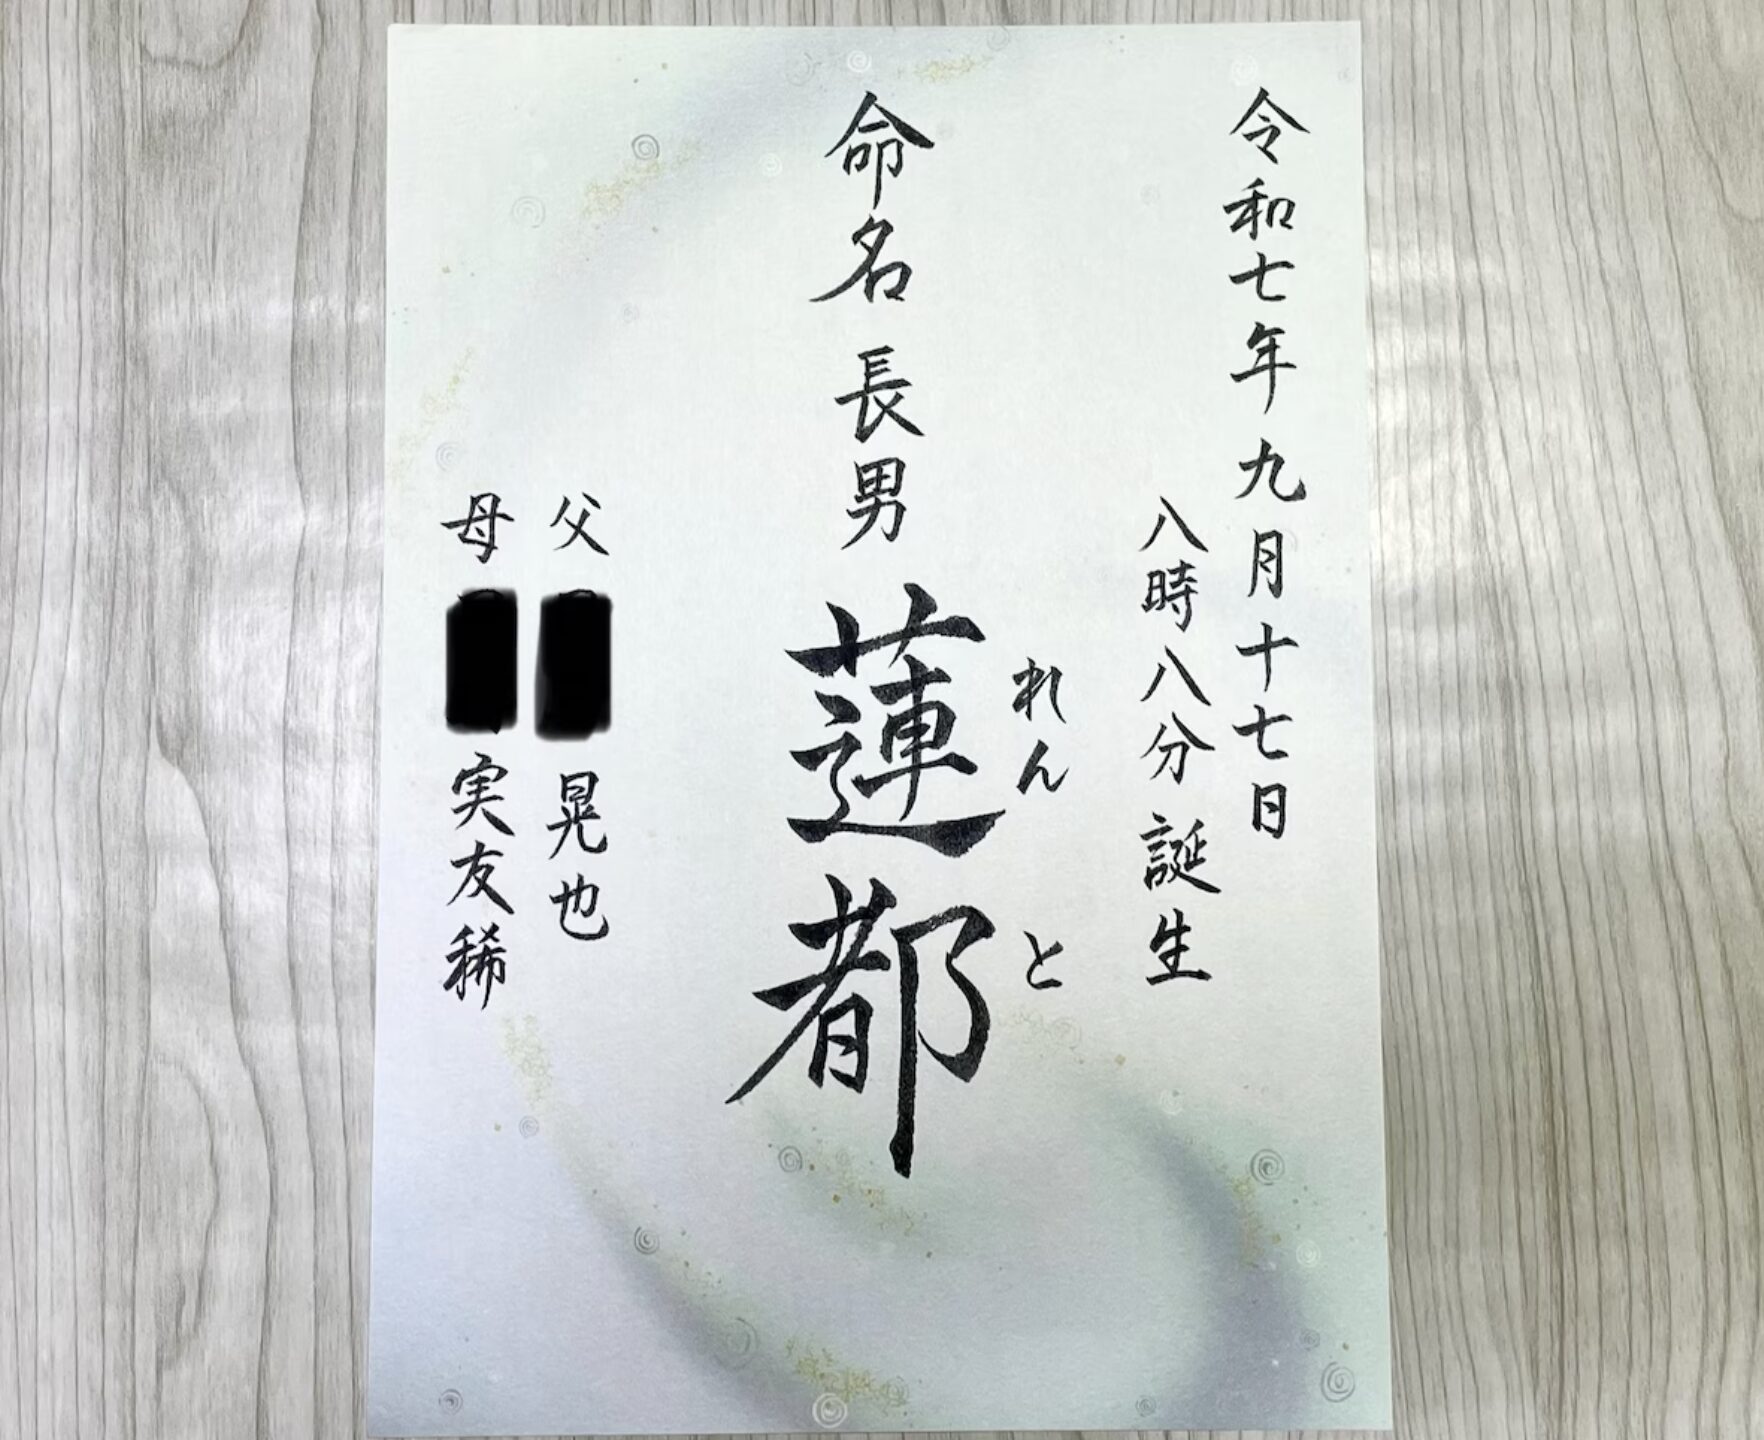 令和七年 九月十七日
八時八分 誕生
命名 長男 蓮都
れんと
父 晃也
母 実友稀